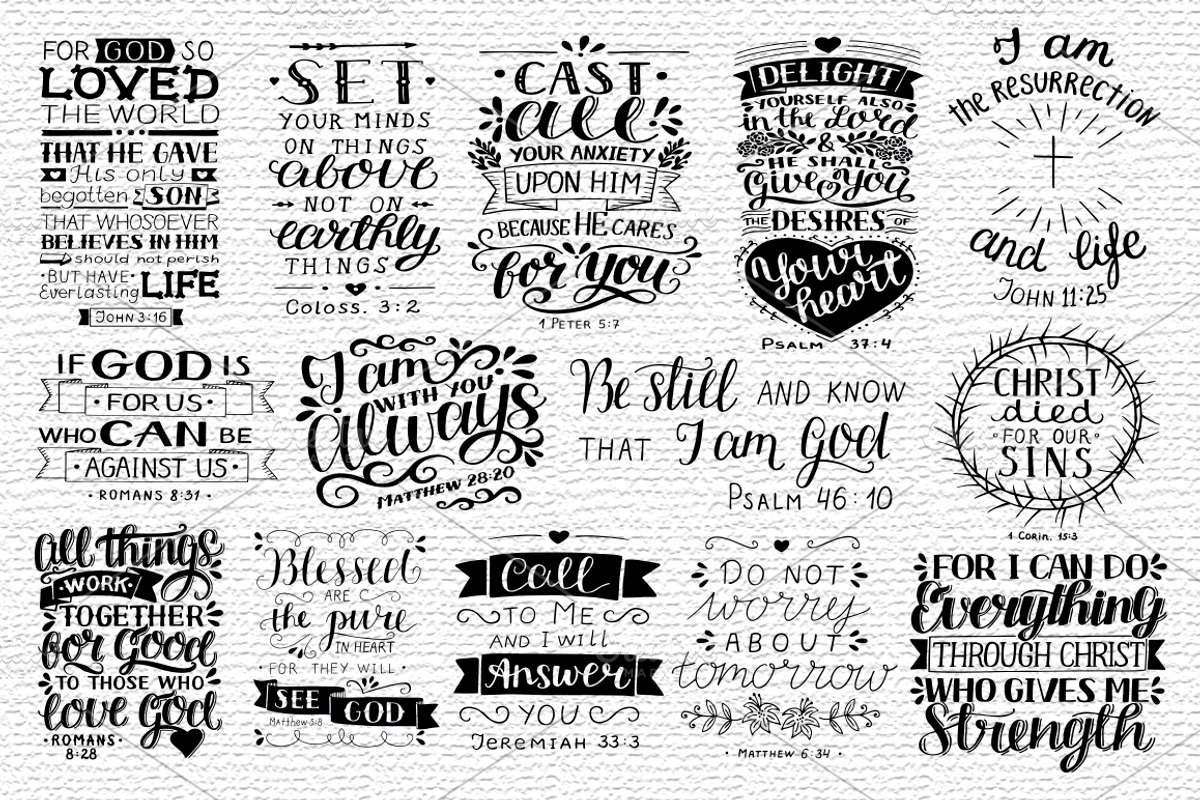 FOR GOD SO
LOVED
THE WORLD
THAT HE GAVE
His only
begotten SON
THAT WHOSOEVER
BELIEVES IN HIM
should not perish
BUT HAVE
Everlasting LIFE
JOHN 3:16
SET
YOUR MINDS
ON THINGS
above
NOT ON
earthly
THINGS
Coloss. 3:2
CAST
all
YOUR ANXIETY
UPON HIM
BECAUSE HE CARES
for you
1 PETER 5:7
DELIGHT
YOURSELF ALSO
in the Lord
&
HE SHALL
Give You
THE DESIRES OF
Your
heart
PSALM 37:4
I am
the RESURRECTION
and life
JOHN 11:25
IF GOD IS
FOR US
WHO CAN BE
AGAINST US
ROMANS 8:31
I am
WITH YOU
Always
MATTHEW 28:20
Be still AND KNOW
THAT I am God
PSALM 46:10
CHRIST
died
FOR OUR
SINS
1 Corin. 15:3
all things
WORK
TOGETHER
for Good
TO THOSE WHO
love God
ROMANS
8:28
Blessed
ARE
the pure
IN HEART
FOR THEY WILL
SEE
GOD
Matthew 5:8
Call
TO ME
AND I WILL
Answer
YOU
Jeremiah 33:3
DO NOT
worry
ABOUT
tomorrow
MATTHEW 6:34
FOR I CAN DO
Everything
THROUGH CHRIST
WHO GIVES ME
Strength